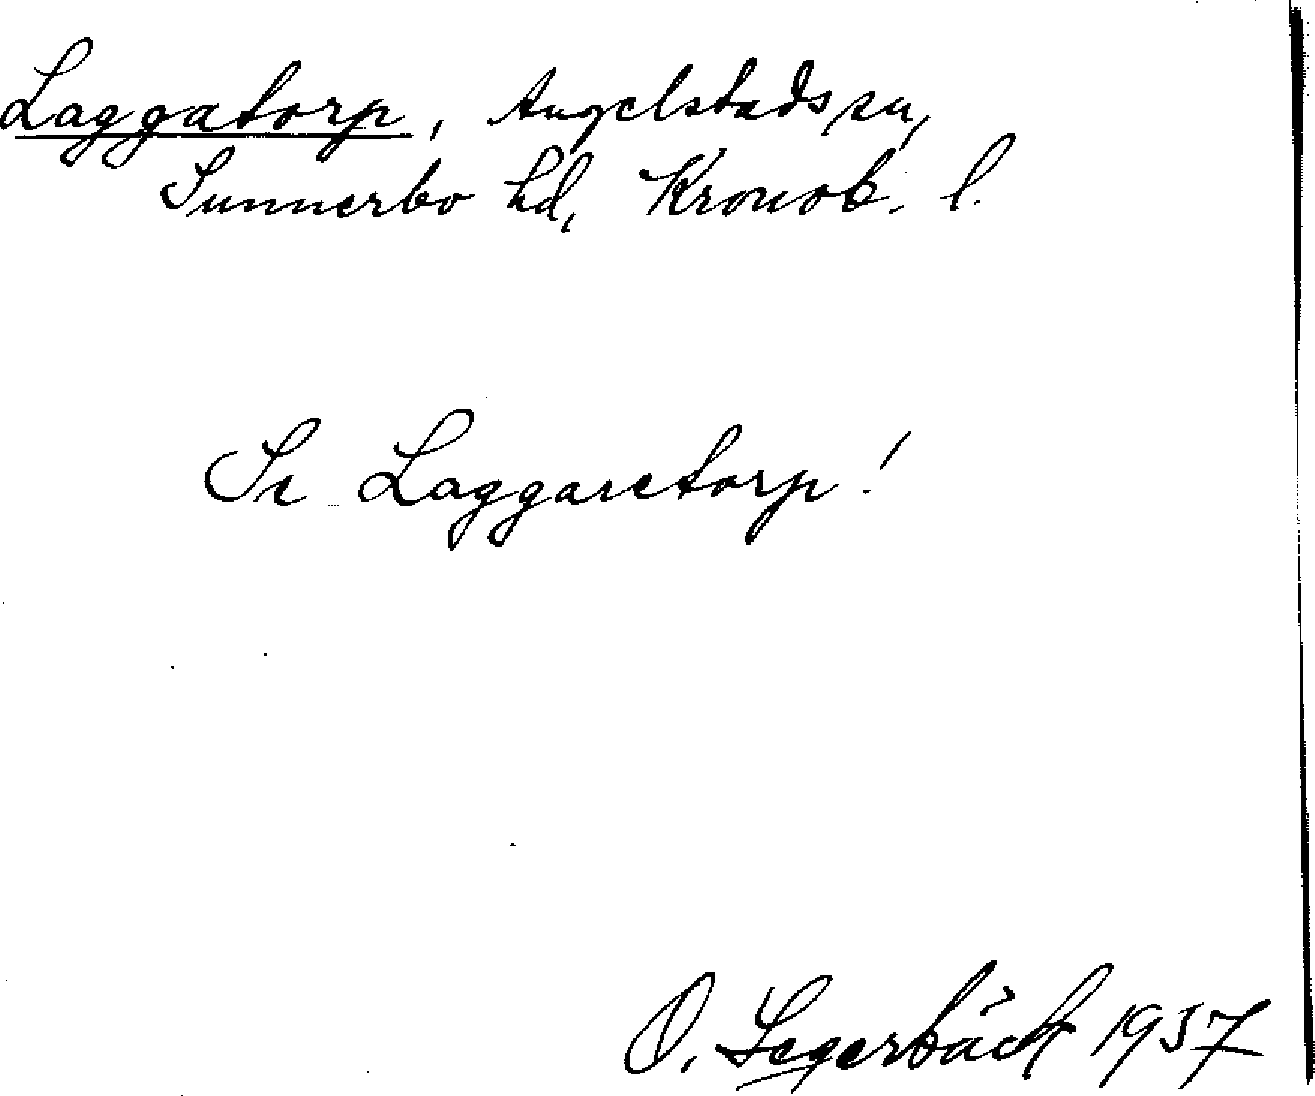 Laggatorp, Angelstads sn,
Sunnerbo hd, Kronob. l.
Se Laggaretorp!
O. Segerbäck 1937